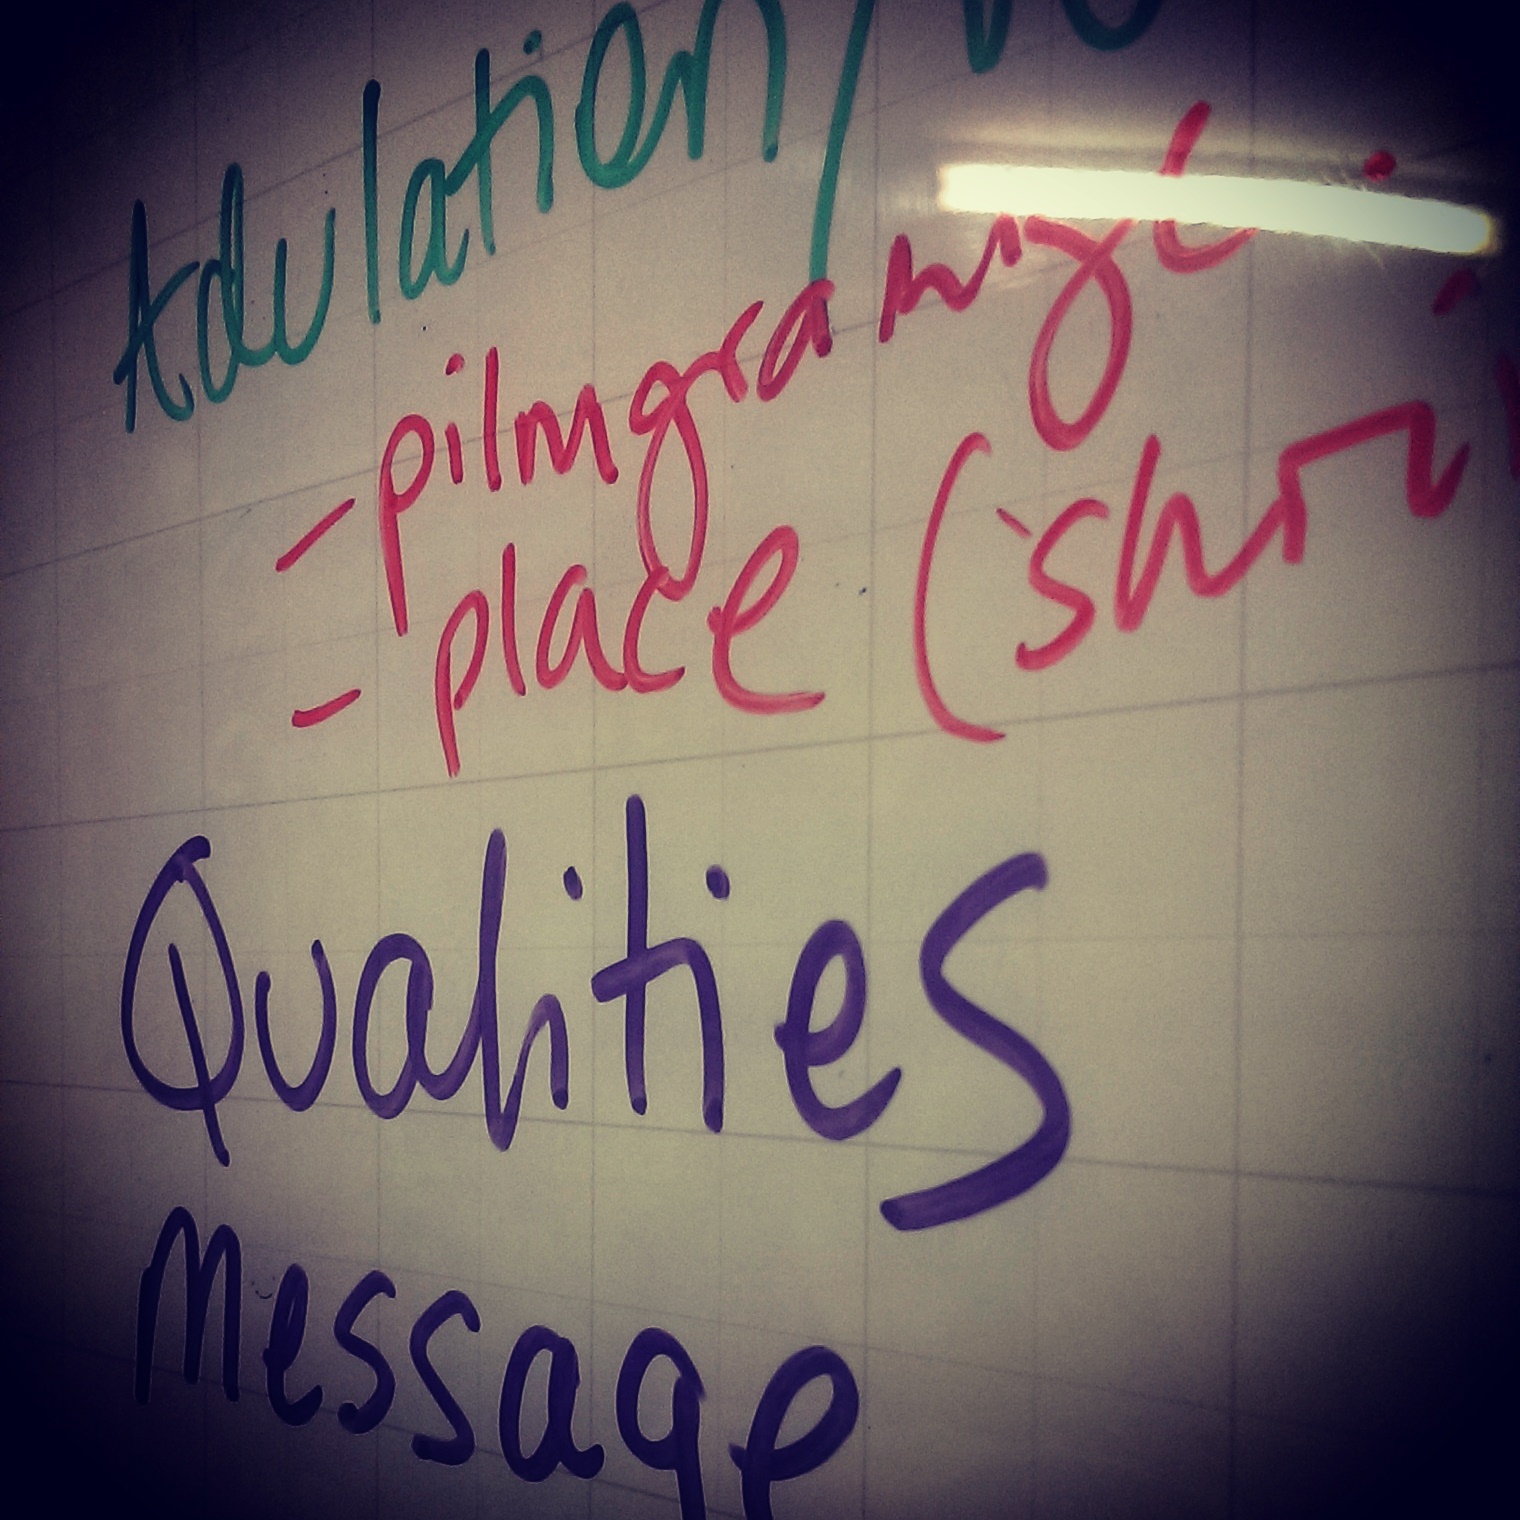 Adulation/
- pilmgramige
- place (shri
Qualities
Message